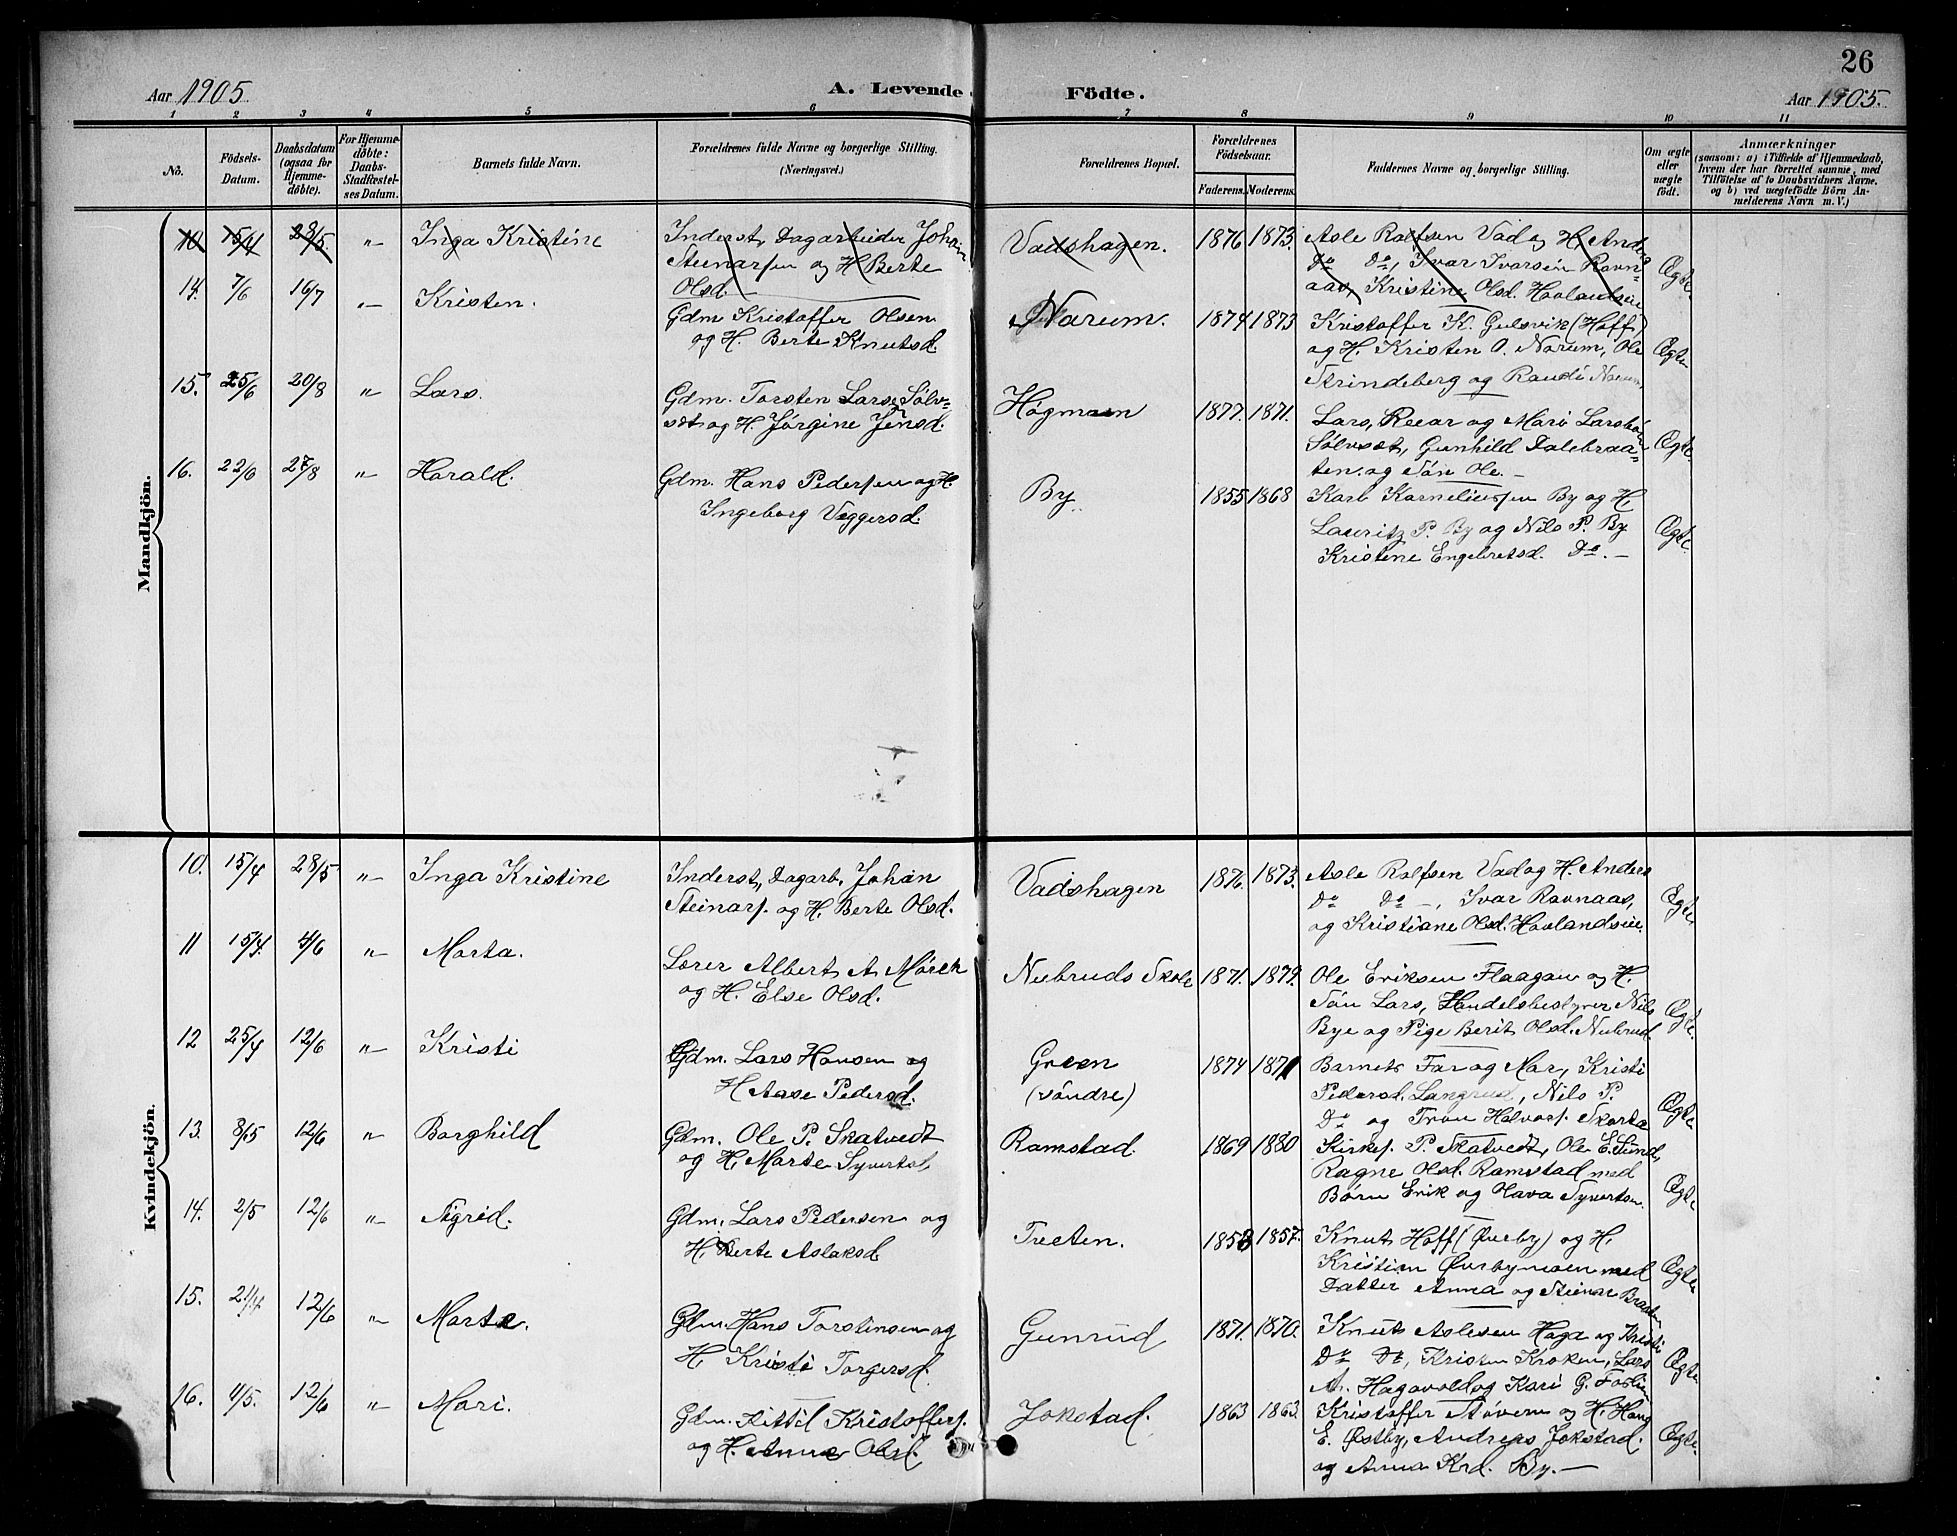 26
Aar 1905. A. Levende Födte. Aar 1905.
1 2 3 4 5 6 7 8 9 10 11
No.
Födsels-
Datum.
Daabsdatum
(ogsaa for
Hjemme-
döbte).
For Hjemme-
döbte:
Daabs-
Stadfæstel-
ses Datum.
Barnets fulde Navn.
Forældrenes fulde Navne og borgerlige Stilling.
(Næringsvei.)
Forældrenes Bopæl.
Forældrenes
Födselsaar.
Faderens. Moderens.
Faddernes Navne og borgerlige Stilling.
Om ægte
eller
uægte
födt.
Anmærkninger
(saasom: a) i Tilfælde af Hjemmedaab,
hvem der har forrettet samme, med
Tilföielse af to Daabsvidners Navne,
og b) ved uægtefödte Börn An-
melderens Navn m. V.)
Mandkjön.
10 15/4 28/5. „ Inga Kristine
Inderst, Dagarbeider Johan
Steinarsen og H. Berte
Olsd.
Vadshagen. 1876 1873.
Asle Rolfsen Vad og H. Anders
Do Do, Ivar Ivarsen Ravn-
aas, Kristine Olsd. Havlandseie
Ægte.
14. 7/6 16/7 „ Kristen.
Gdm Kristoffer Olsen
og H. Berte Knutsd.
Narum. 1874 1873
Kristoffer K. Gulsvik (Hoff)
og H. Kristen O. Narum, Ole
Strindeberg og Randi Narum
Ægte
15. 25/6 20/8 „ Lars.
Gdm. Torsten Larss. Sölv-
sæt og H. Jörgine Jensd.
Högmoen 1877. 1871.
Lars, Reiar og Mari Larsbön
Sölvsæt, Gunhild Dalebraa-
ten og Sön Ole.
Ægte.
16. 27/8 „ Harald.
Gdm. Hans Pedersen og H.
Ingeborg Viggersd.
By. 1855 1868
Karl Korneliussen By og H.
Lauritz P. By og Nils P. By
Kristine Engebretsd. Do. —
Ægte.
Kvindekjön.
10. 15/4 28/5 „ Inga Kristine
Inderst, Dagarb. Johan
Steinars. og H. Berte Olsd.
Vadshagen 1876. 1873.
Asle Rolfsen Vad og H. Anders
Do Do —, Ivar Ravnaas,
og Kristiane Olsd. Havlandseie.
Ægte.
11 15/4. 4/6 „ Marta.
Lærer Albert A. Mörch
og H. Else Olsd.
Nubruds Skole 1871. 1879.
Ole Eriksen Flaagan og H.
Sön Lars, Handelsbestyrer Nils
Bye og Pige Berit Olsd. Nubrud.
Ægte.
12 25/4 12/6 „ Kristi
Gdm. Lars Hansen og
H. Aase Pedersd.
Green
(söndre)
1874 1871
Barnets Far og Mor, Kristi
Pedersd. Langrud, Nils P.
Do og Tron Halvors. Skarta
Ægte.
13. 8/5 12/6 „ Borghild
Gdm. Ole P. Skatvedt
og H. Marte Syvertsd.
Ramstad. 1869 1880
Kirkes. P. Skatvedt, Ole E. Lund,
Ragne Olsd. Ramstad med
Börn Erik og Olava Syvertsen.
Ægte.
14. 2/5 12/6 „ Sigrid.
Gdm. Lars Pedersen og
H. Berte Aslaksd
Treeten. 1853 1857.
Knut Hoff (Överby) og H.
Kristian Överbymoen med
Datter Anna og Steinar Braaten
Ægte
15. 21/4 12/6 „ Marte.
Gdm. Hans Torstensen og
H. Kristi Torgersd.
Gunrud 1871. 1870.
Knut Aslesen Haga og Kristi
Do Do, Kristen Kroken, Lars
A. Hagavold og Kari G. Foslien
Ægte.
16. 4/5. 12/6 „ Mari.
Gdm. Kittil Kristoffers.
og H. Anne Olsd.
Jokstad. 1863 1863.
Kristoffer Stövern og H. Hans
E. Östby, Andreas Jokstad.
og Anna Krd. By. —
Ægte.